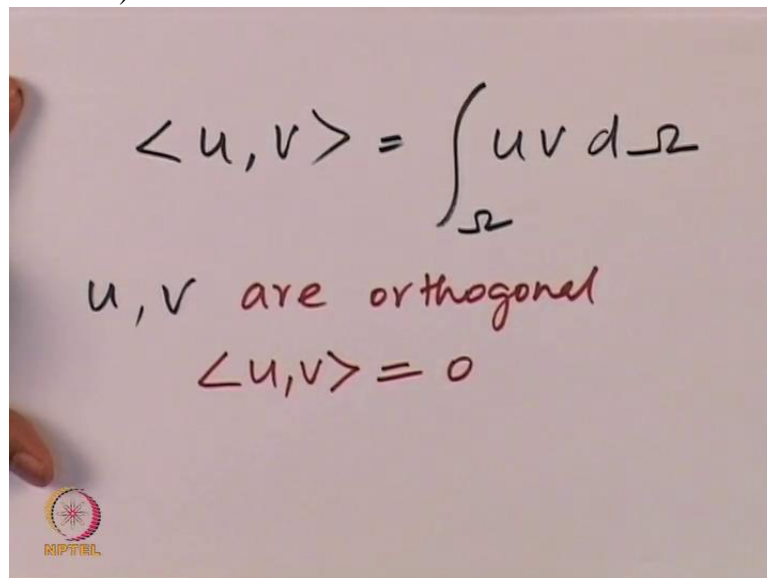 <u, v> = ∫_Ω u v dΩ
u, v are orthogonal
<u,v> = 0
NPTEL